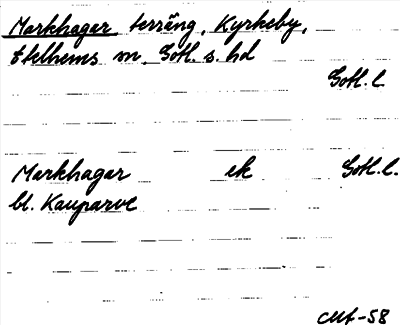 Markhagar terräng, Kyrkeby,
Etelhems sn, Gotl. s. hd
Gotl. l.
Markhagar ek Gotl. l.
bl. Kauparve
-58